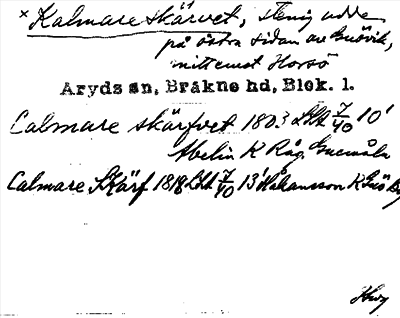 × Kalmare skärvet, stenig udde
på östra sidan av Gnövik,
mitt emot Horsö
Aryds sn, Bräkne hd, Blek. l.
Calmare skärfvet 1803 LSA 7/40 10'
Abelin K Råg. Guemåla
Calmare Skärf 1818 LSA 7/40 13' Håkansson K Gnö